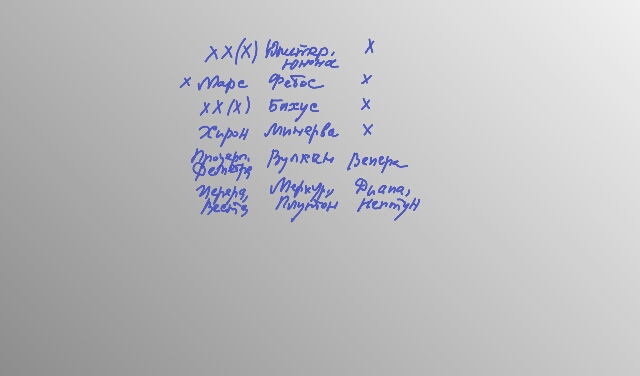 XX(X) Юпитер, X
Юнона
X Марс Фебос X
XX(X) Бахус X
Хирон Минерва X
Прозерп. Вулкан Венера
Церера, Меркур., Диана,
Веста Плутон Нептун